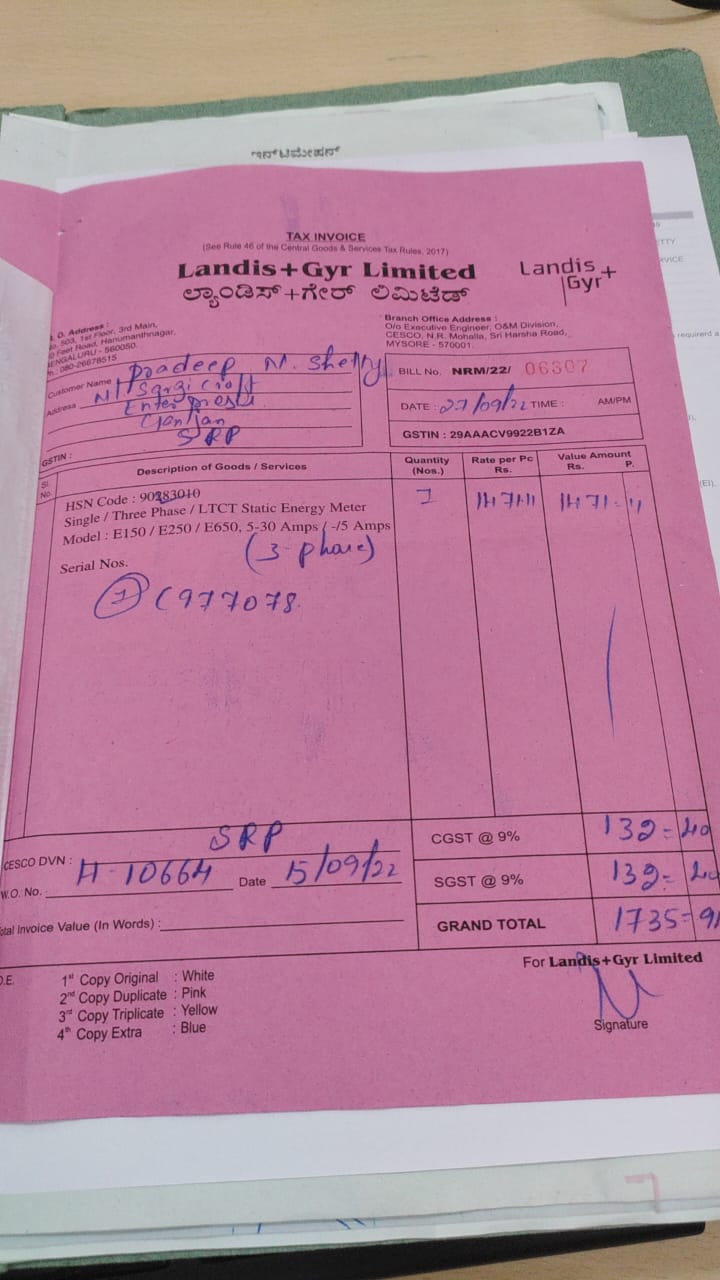 ಇನ್‌ಟಿಮೇಷನ್
TAX INVOICE
(See Rule 46 of the Central Goods & Services Tax Rules, 2017)
Landis+Gyr Limited
ಲ್ಯಾಂಡಿಸ್+ಗೇರ್ ಲಿಮಿಟೆಡ್
Landis+
Gyr
O. Address :
503, 1st Floor, 3rd Main,
Feet Road, Hanumanthnagar,
BENGALURU - 560050.
080-26678515
Branch Office Address :
O/o Executive Engineer, O&M Division,
CESCO, N.R. Mohalla, Sri Harsha Road,
MYSORE - 570001.
Customer Name Pradeep M. Shetty
Address
SRP
GSTIN :
BILL No. NRM/22/ 06307
DATE : 27/09/22 TIME : AM/PM
GSTIN : 29AAACV9922B1ZA
Sl. No. Description of Goods / Services Quantity (Nos.) Rate per Pc Rs. Value Amount Rs. P.
HSN Code : 90283010
Single / Three Phase / LTCT Static Energy Meter
Model : E150 / E250 / E650, 5-30 Amps / -/5 Amps
1
(3-phase)
Serial Nos.
① C977078
SRP
CESCO DVN :
W.O. No. H-10664 Date 15/09/22
Total Invoice Value (In Words) :
CGST @ 9% 132=40
SGST @ 9% 132=
GRAND TOTAL 1735=
1st Copy Original : White
2nd Copy Duplicate : Pink
3rd Copy Triplicate : Yellow
4th Copy Extra : Blue
For Landis+Gyr Limited
Signature